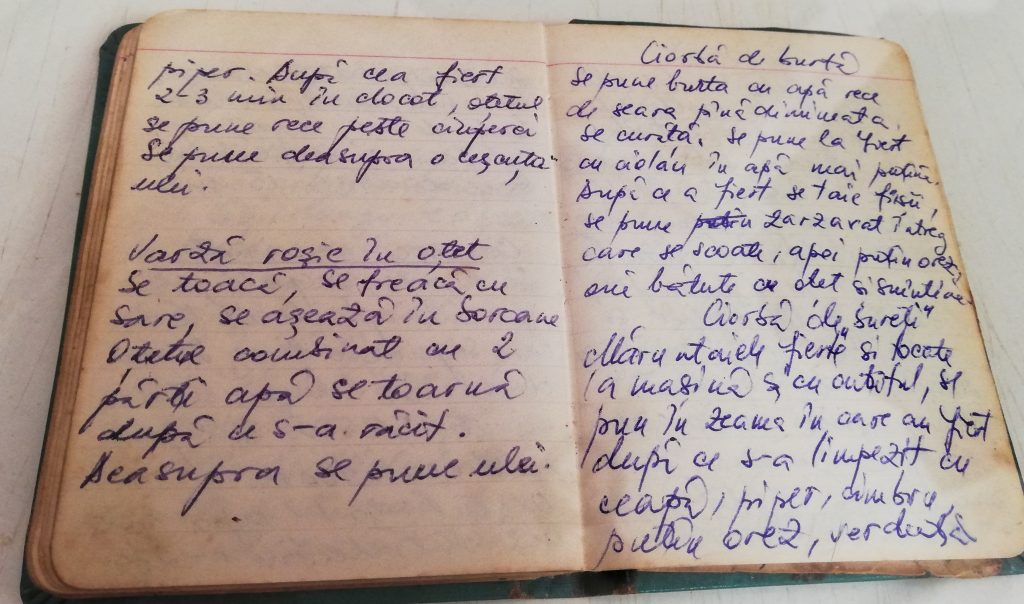 piper. După cea fiert
2-3 min în clocot, oțetul
se pune rece peste ciuperci
Se pune deasupra o ceșcuță
ulei.
Varză roșie în oțet
Se toacă, se freacă cu
sare, se așează în borcane
Oțetul combinat cu 2
părți apă se toarnă
după ce s-a răcit.
Deasupra se pune ulei.
Ciorbă de burtă
Se pune burta cu apă rece
de seara pînă dimineața.
Se curăță. Se pune la fiert
cu ciolan în apă mai puțină.
După ce a fiert se taie fîșii,
se pune puțin zarzavat întreg
care se scoate, apoi puțin orez,
ouă bătute cu oțet și smîntînă.
Ciorbă de „bureți"
Măruntaiele fierte și tocate
la mașină și cu cuțitul, se
pun în zeama în care au fiert
după ce s-a limpezit cu
ceapă, piper, cimbru,
puțin orez, verdeață